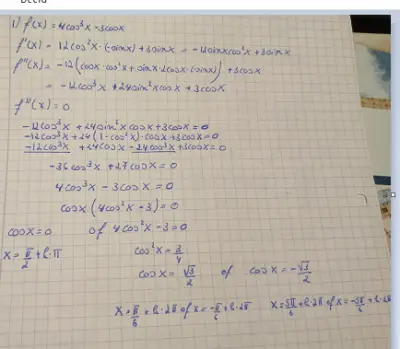 1) f(x) = 4cos³x - 3cosx
f'(x) = 12cos²x·(-sinx) + 3sinx = -12sinxcos²x + 3sinx
f''(x) = -12(cosx·cos²x + sinx·2cosx·(-sinx)) + 3cosx
= -12cos³x + 24sin²xcosx + 3cosx
f''(x) = 0
-12cos³x + 24sin²xcosx + 3cosx = 0
-12cos³x + 24(1-cos²x)·cosx + 3cosx = 0
-12cos³x + 24cosx - 24cos³x + 3cosx = 0
-36cos³x + 27cosx = 0
4cos³x - 3cosx = 0
cosx(4cos²x - 3) = 0
cosx = 0 of 4cos²x - 3 = 0
x = π/2 + k·π cos²x = 3/4
cosx = √3/2 of cosx = -√3/2
x = π/6 + k·2π of x = -π/6 + k·2π x = 5π/6 + k·2π of x = -5π/6 + k·2π